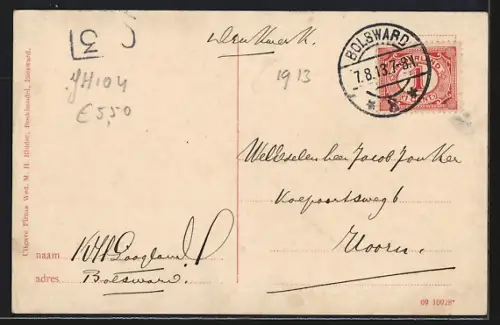 3
JH104
€5,50
Drukwerk.
1913
BOLSWARD
7.8.13.7-8N.
NEDERLAND
1
Uitgave Firma Wed. M. H. Boekhandel, Bolsward.
WelEdelen heer Jacob Jonker
Koepoortsweg 6
Hoorn.
naam
adres
Bolsward.
09 10928*